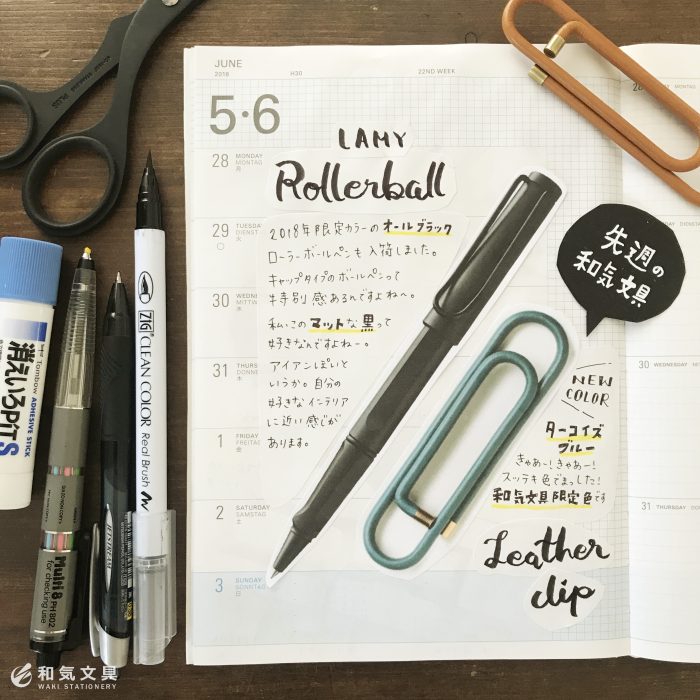 JUNE
2018 H30 22ND WEEK
5·6
28 MONDAY
MONTAG
月
29 TUESDAY
DIENST
火
30 WEDNE
MITTW
水
31 THURSD
DONNE
木
1 FRIDAY
FREITAG
金
2 SATURDAY
SAMSTAG
土
3 SUNDAY
SONNTAG
LAMY
Rollerball
2018年限定カラーのオールブラック
ローラーボールペンも入荷しました。
キャップタイプのボールペンって
特別感あるんですよね〜。
私いこのマットな黒って
好きなんですよねー。
アイアンぽいと
いうか。自分の
好きなインテリア
に近い感じが
あります。
先週の
和気文具
NEW
COLOR
ターコイズ
ブルー
きゃあー!きゃあー!
ステキ色でまっした!
和気文具限定色です
Leather
clip
30 WEDNESDAY
31 THURSDAY
PLUS
Tombow ADHESIVE STICK
消えいろPiT S
Multi 8
PH-802
for checking use
JETSTREAM
ZIG CLEAN COLOR Real Brush
和気文具
WAKI STATIONERY